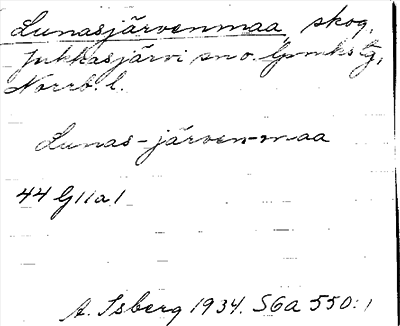 Lunasjärvenmaa skog,
Jukkasjärvi sn o. Gvmkstg,
Norrb. l.
Lunas-järven-maa
44 G11a1
A. Isberg 1934. SGa 550:1